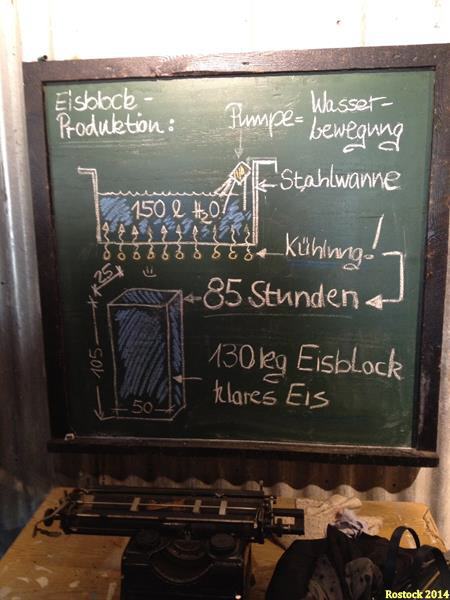 Eisblock-
Produktion:
Pumpe = Wasser-
bewegung
Stahlwanne
150 l H₂O!
Kühlung!
25
85 Stunden
105
130kg Eisblock
klares Eis
50
Rostock 2014